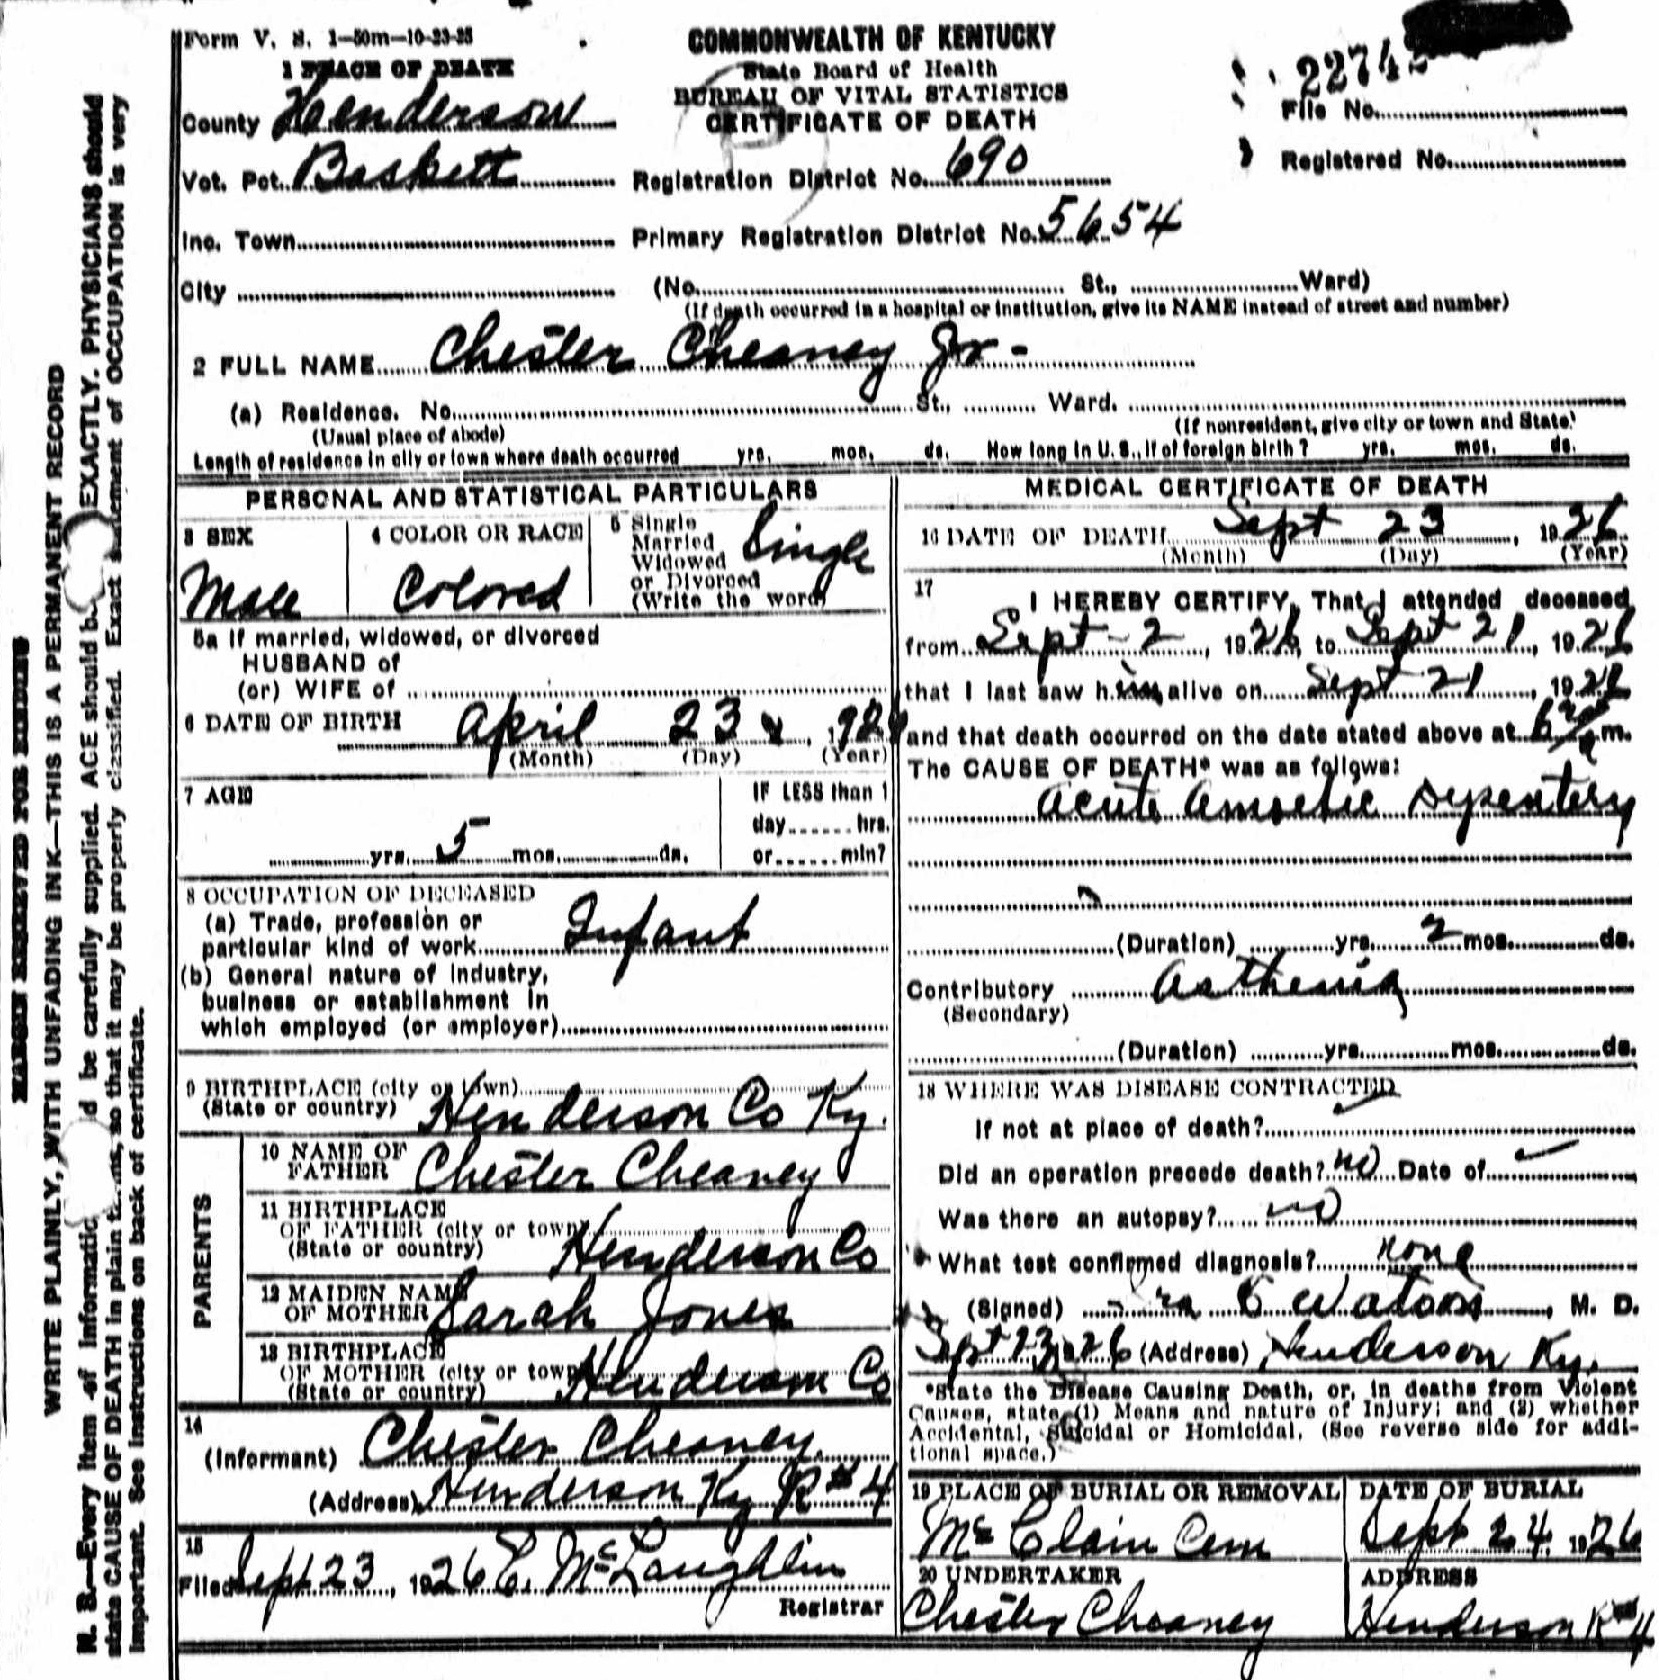 Form V. S. 1-50m-10-23-25
COMMONWEALTH OF KENTUCKY
State Board of Health
BUREAU OF VITAL STATISTICS
CERTIFICATE OF DEATH
1 PLACE OF DEATH
County Henderson
Vot. Pct. Baskett
Inc. Town
City
File No.
Registered No.
Registration District No. 690
Primary Registration District No. 5654
(No. St., Ward)
(If death occurred in a hospital or institution, give its NAME instead of street and number)
2 FULL NAME Chester Cheaney Jr-
(a) Residence. No. St., Ward.
(Usual place of abode) (If nonresident, give city or town and State)
Length of residence in city or town where death occurred yrs. mos. ds. How long in U. S., if of foreign birth? yrs. mos. ds.
PERSONAL AND STATISTICAL PARTICULARS
3 SEX
Male
4 COLOR OR RACE
Colored
5 Single
Married
Widowed
or Divorced
(Write the word)
Single
5a If married, widowed, or divorced
HUSBAND of
(or) WIFE of
6 DATE OF BIRTH April 23
(Month) (Day) (Year)
7 AGE
yrs. 5 mos. ds.
IF LESS than 1
day hrs.
or min?
8 OCCUPATION OF DECEASED
(a) Trade, profession or
particular kind of work Infant
(b) General nature of industry,
business or establishment in
which employed (or employer)
9 BIRTHPLACE (city or town)
(State or country) Henderson Co Ky.
PARENTS
10 NAME OF
FATHER Chester Cheaney
11 BIRTHPLACE
OF FATHER (city or town)
(State or country) Henderson Co
12 MAIDEN NAME
OF MOTHER Sarah Jones
13 BIRTHPLACE
OF MOTHER (city or town)
(State or country) Henderson Co
14
(Informant) Chester Cheaney
(Address) Henderson Ky R#4
15
Filed Sept 23, 1926 E. McLaughlin
Registrar
MEDICAL CERTIFICATE OF DEATH
16 DATE OF DEATH Sept 23, 1926
(Month) (Day) (Year)
17
I HEREBY CERTIFY, That I attended deceased
from Sept-2, 1926, to Sept 21, 1926
that I last saw him alive on Sept 21, 1926
and that death occurred on the date stated above at m.
The CAUSE OF DEATH* was as follows:
Acute Amoebic Dysentery
(Duration) yrs. 2 mos. ds.
Contributory Asthenia
(Secondary)
(Duration) yrs. mos. ds.
18 WHERE WAS DISEASE CONTRACTED
If not at place of death?
Did an operation precede death? no Date of
Was there an autopsy? no
What test confirmed diagnosis? none
(Signed) Watson, M. D.
Sept 23, 1926 (Address) Henderson Ky.
*State the Disease Causing Death, or, in deaths from Violent
Causes, state (1) Means and nature of Injury; and (2) whether
Accidental, Suicidal or Homicidal. (See reverse side for addi-
tional space.)
19 PLACE OF BURIAL OR REMOVAL
McClain Cem
DATE OF BURIAL
Sept 24. 1926
20 UNDERTAKER
Chester Cheaney
ADDRESS
Henderson R#4
MARGIN RESERVED FOR BINDING
WRITE PLAINLY, WITH UNFADING INK—THIS IS A PERMANENT RECORD
N. B.—Every item of information should be carefully supplied. AGE should be EXACTLY. PHYSICIANS should
state CAUSE OF DEATH in plain terms, so that it may be properly classified. Exact statement of OCCUPATION is very
important. See instructions on back of certificate.